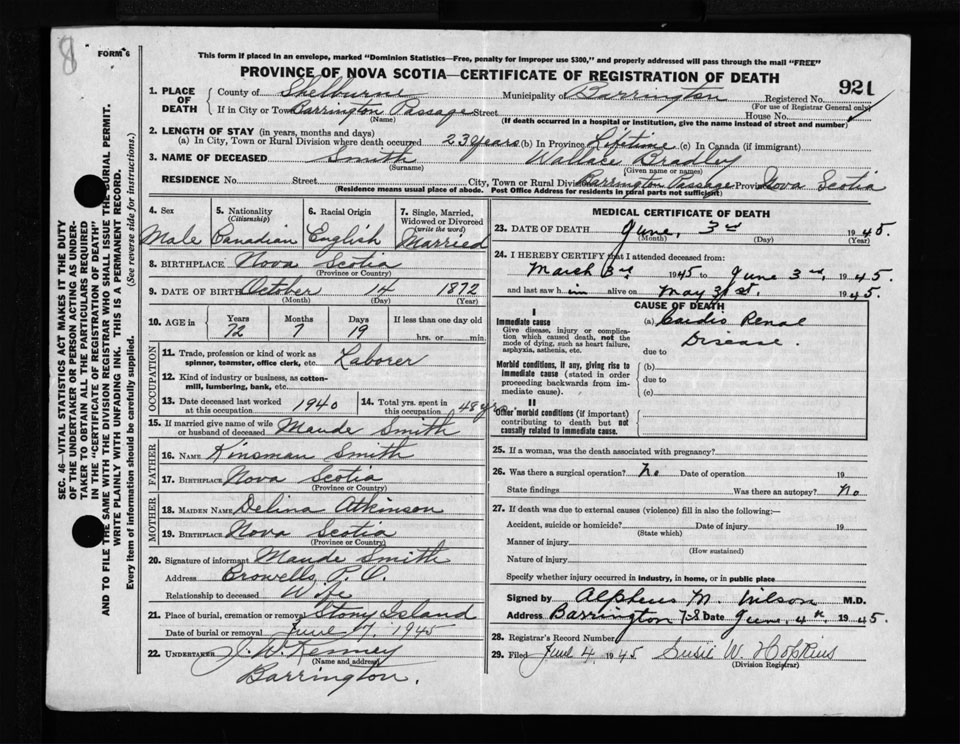 8
FORM 6
This form if placed in an envelope, marked "Dominion Statistics—Free, penalty for improper use $300," and properly addressed will pass through the mail "FREE"
PROVINCE OF NOVA SCOTIA—CERTIFICATE OF REGISTRATION OF DEATH
921
1. PLACE OF DEATH
County of Shelburne Municipality of Barrington Registered No.
(For use of Registrar General only)
If in City or Town Barrington Passage Street House No.
(Name) (If death occurred in a hospital or institution, give the name instead of street and number)
2. LENGTH OF STAY (in years, months and days)
(a) In City, Town or Rural Division where death occurred 23 years (b) In Province Lifetime (c) In Canada (if immigrant)
3. NAME OF DECEASED Smith Wallace Bradley
(Surname) (Given name or names)
RESIDENCE No. Street City, Town or Rural Division Barrington Passage Province Nova Scotia
(Residence means usual place of abode. Post Office Address for residents in rural parts not sufficient)
4. Sex Male
5. Nationality (Citizenship) Canadian
6. Racial Origin English
7. Single, Married, Widowed or Divorced (write the word) Married
8. BIRTHPLACE Nova Scotia
(Province or Country)
9. DATE OF BIRTH October 14 1872
(Month) (Day) (Year)
10. AGE in Years Months Days If less than one day old
72 7 19 hrs. or min.
OCCUPATION
11. Trade, profession or kind of work as spinner, teamster, office clerk, etc. Laborer
12. Kind of industry or business, as cotton-mill, lumbering, bank, etc.
13. Date deceased last worked at this occupation 1940
14. Total yrs. spent in this occupation 48 yrs
15. If married give name of wife or husband of deceased Maude Smith
FATHER
16. NAME Kinsman Smith
17. BIRTHPLACE Nova Scotia
(Province or Country)
MOTHER
18. MAIDEN NAME Delina Atkinson
19. BIRTHPLACE Nova Scotia
(Province or Country)
20. Signature of informant Maude Smith
Address Crowells, P.O.
Relationship to deceased Wife
21. Place of burial, cremation or removal Stony Island
Date of burial or removal June 7, 1945
22. UNDERTAKER J. W. Kenney
(Name and address)
Barrington.
MEDICAL CERTIFICATE OF DEATH
23. DATE OF DEATH June, 3rd 1945.
(Month) (Day) (Year)
24. I HEREBY CERTIFY that I attended deceased from:
March 3rd 1945 to June 3rd, 1945
and last saw him alive on May 31st. 1945.
CAUSE OF DEATH
I
Immediate cause
Give disease, injury or complication which caused death, not the mode of dying, such as heart failure, asphyxia, asthenia, etc.
(a) Cardio Renal
Disease.
due to
Morbid conditions, if any, giving rise to immediate cause (stated in order proceeding backwards from immediate cause).
(b)
due to
(c)
II
Other morbid conditions (if important) contributing to death but not causally related to immediate cause.
25. If a woman, was the death associated with pregnancy?
26. Was there a surgical operation? No Date of operation 19
State findings Was there an autopsy? No
27. If death was due to external causes (violence) fill in also the following:—
Accident, suicide or homicide? Date of injury 19
(State which)
Manner of injury
(How sustained)
Nature of injury
Specify whether injury occurred in industry, in home, or in public place
Signed by Alpheus M. Wilson M.D.
Address Barrington N.S. Date June, 4th 1945.
28. Registrar's Record Number
29. Filed June 4 1945 Susie W. Hopkins
(Division Registrar)
SEC. 46—VITAL STATISTICS ACT MAKES IT THE DUTY
OF THE UNDERTAKER OR PERSON ACTING AS UNDERTAKER TO OBTAIN ALL THE PARTICULARS REQUIRED
IN THE "CERTIFICATE OF REGISTRATION OF DEATH"
AND TO FILE THE SAME WITH THE DIVISION REGISTRAR WHO SHALL ISSUE THE BURIAL PERMIT.
WRITE PLAINLY WITH UNFADING INK. THIS IS A PERMANENT RECORD.
Every item of information should be carefully supplied. (See reverse side for instructions.)